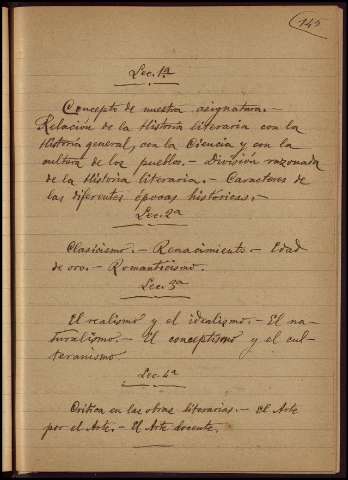 145
Lec. 1ª
Concepto de nuestra asignatura.—
Relación de la Historia literaria con la
Historia general, con la Ciencia y con la
cultura de los pueblos.— División razonada
de la Historia literaria.— Caracteres de
las diferentes épocas históricas.—
Lec. 2ª
Clasicismo.— Renacimiento.— Edad
de oro.— Romanticismo.
Lec. 3ª
El realismo y el idealismo.— El na-
turalismo.— El conceptismo y el cul-
teranismo
Lec. 4ª
Crítica en las obras literarias.— El Arte
por el Arte.— El Arte docente.